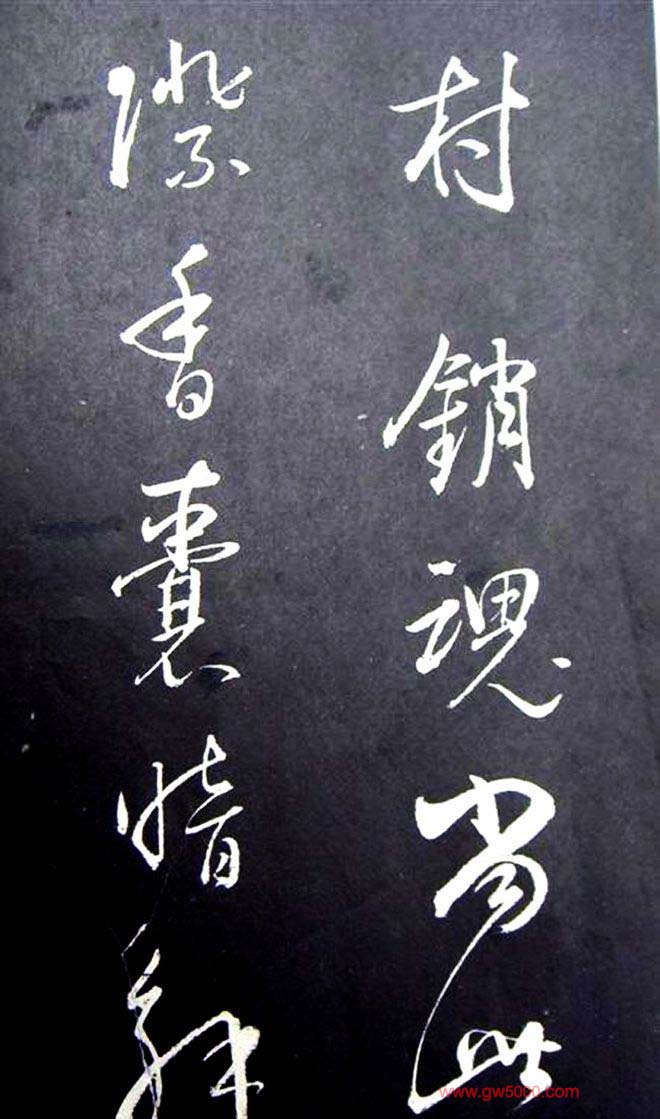 村銷魂當此
際香囊暗解
www.gw5000.com